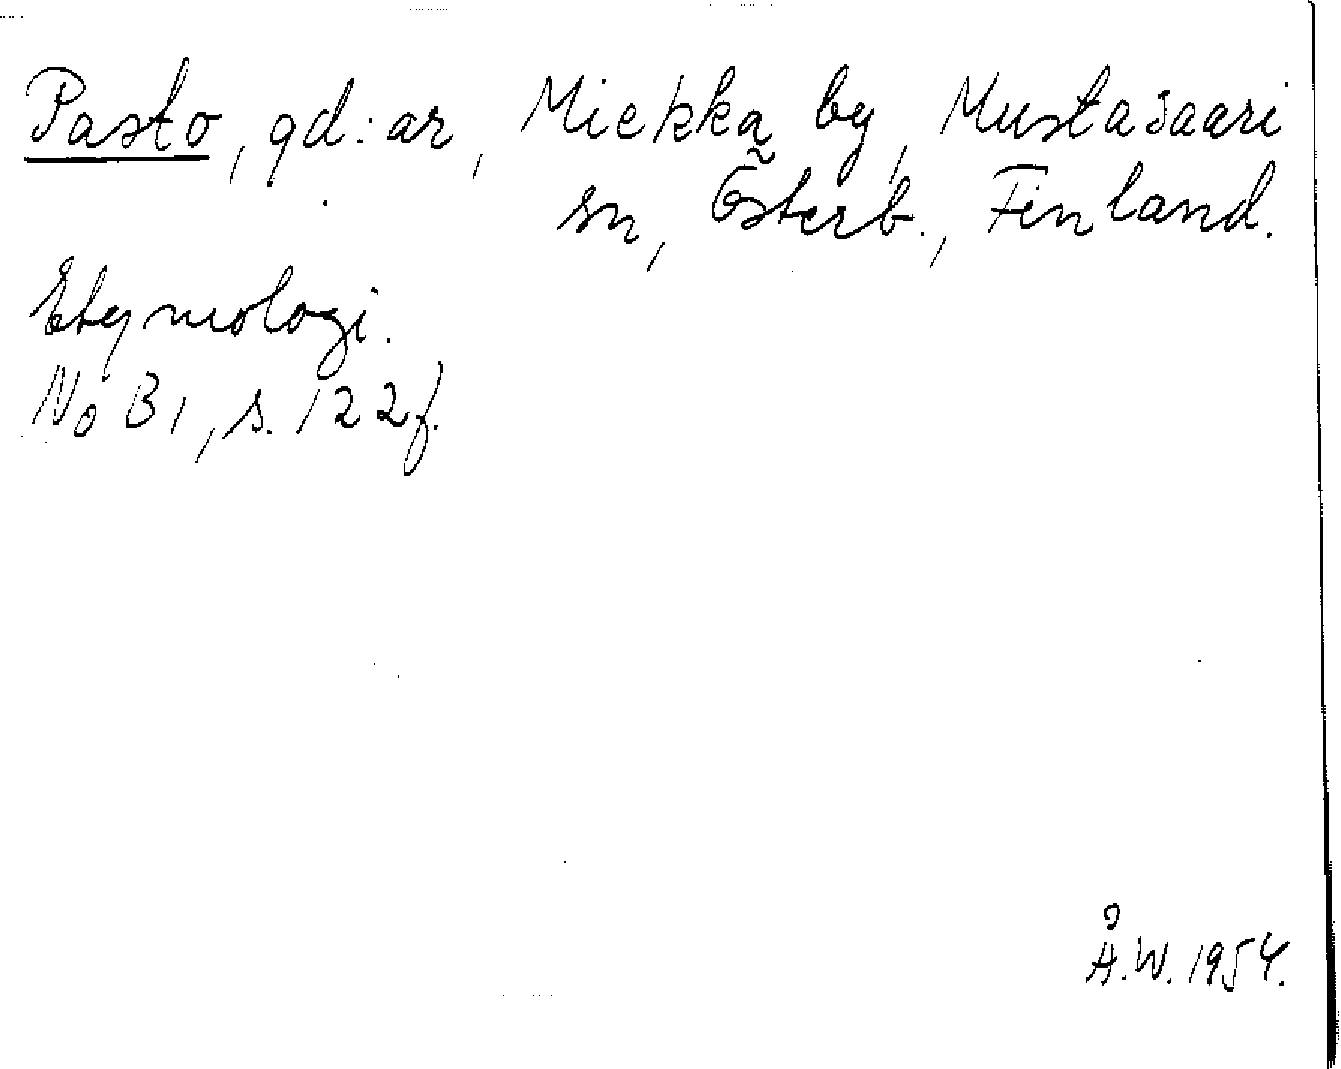 Pasto, gd:ar, Miekka by, Mustasaari
sn, Österb., Finland.
Etymologi.
NoB 1, s. 122f.
Å.W. 1954.